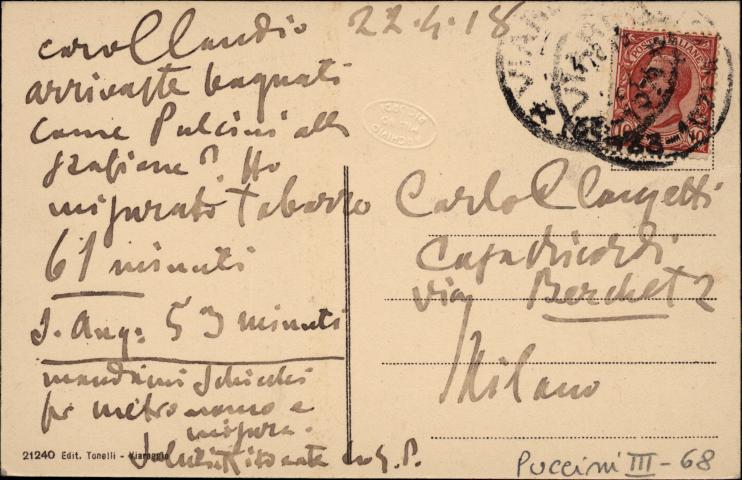 22.4.18
caro Claudio
arrivaste bagnati
come Pulcini alla
stazione? Ho
misurato Tabarro
61 minuti
S. Ang: 53 minuti
mandami Schicchi
per metronomo e
misura.
G. P.
21240 Edit. Tonelli - Viareggio
ARCHIVIO
RICORDI
POSTE ITALIANE
Carlo Clausetti
Casa Ricordi
via Berchet 2
Milano
Puccini III - 68